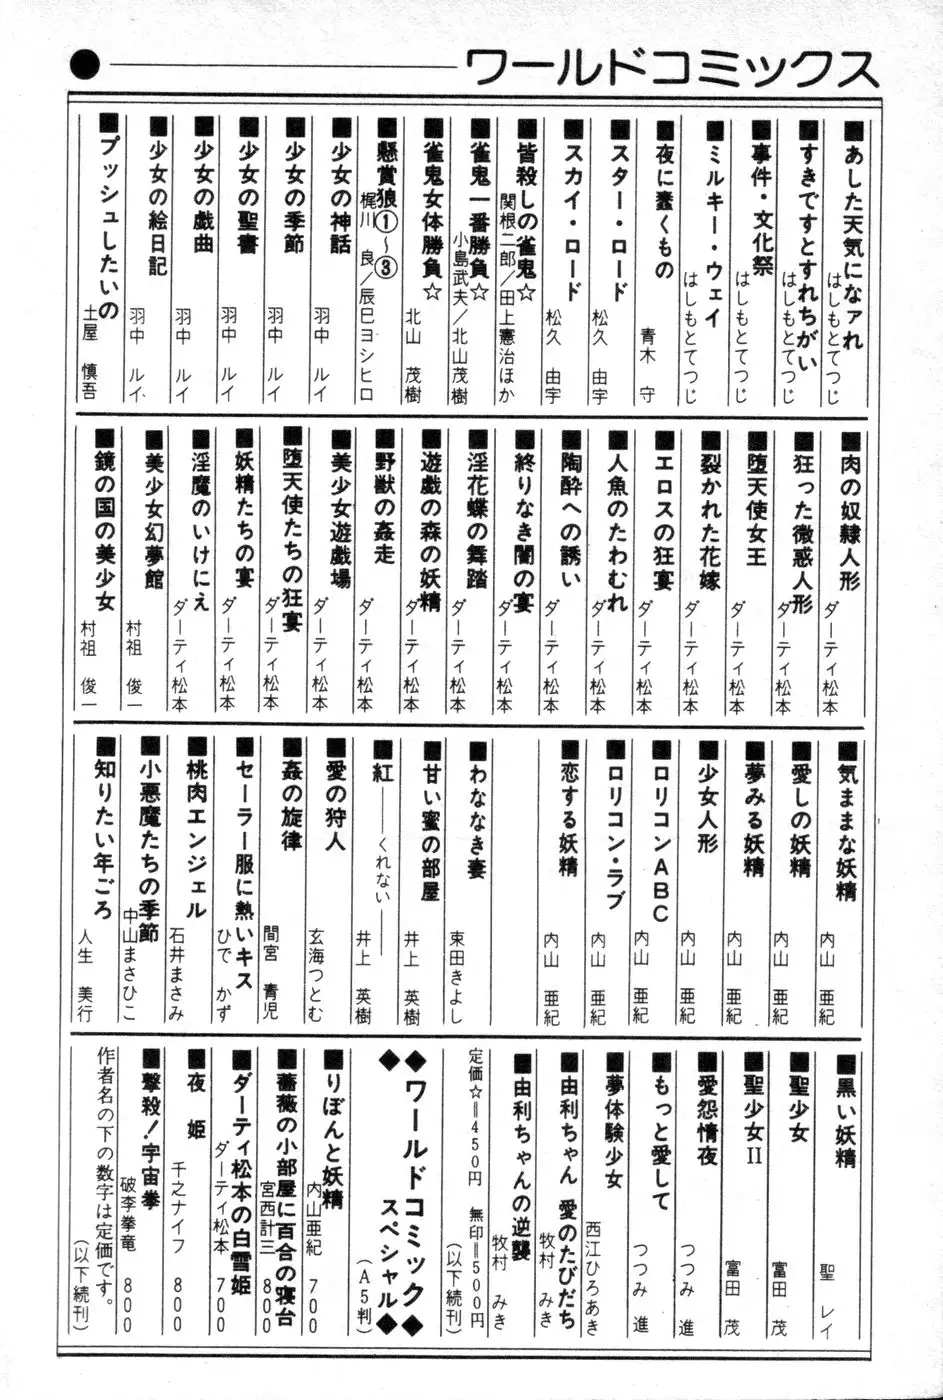 ワールドコミックス
■あした天気になァれ はしもとてつじ
■すきですとすれちがい はしもとてつじ
■事件・文化祭 はしもとてつじ
■ミルキー・ウェイ はしもとてつじ
■夜に蠢くもの 青木 守
■スター・ロード 松久 由宇
■スカイ・ロード 松久 由宇
■皆殺しの雀鬼☆ 関根二郎／田上憲治ほか
■雀鬼一番勝負☆ 小島武夫／北山茂樹
■雀鬼女体勝負☆ 北山 茂樹
■懸賞狼①〜③ 梶川 良／辰巳ヨシヒロ
■少女の神話 羽中 ルイ
■少女の季節 羽中 ルイ
■少女の聖書 羽中 ルイ
■少女の戯曲 羽中 ルイ
■少女の絵日記 羽中 ルイ
■プッシュしたいの 土屋 慎吾
■肉の奴隷人形 ダーティ松本
■狂った微惑人形 ダーティ松本
■堕天使女王 ダーティ松本
■裂かれた花嫁 ダーティ松本
■エロスの狂宴 ダーティ松本
■人魚のたわむれ ダーティ松本
■陶酔への誘い ダーティ松本
■終りなき闇の宴 ダーティ松本
■淫花蝶の舞踏 ダーティ松本
■遊戯の森の妖精 ダーティ松本
■野獣の姦走 ダーティ松本
■美少女遊戯場 ダーティ松本
■堕天使たちの狂宴 ダーティ松本
■妖精たちの宴 ダーティ松本
■淫魔のいけにえ ダーティ松本
■美少女幻夢館 村祖 俊一
■鏡の国の美少女 村祖 俊一
■気ままな妖精 内山 亜紀
■愛しの妖精 内山 亜紀
■夢みる妖精 内山 亜紀
■少女人形 内山 亜紀
■ロリコンABC 内山 亜紀
■ロリコン・ラブ 内山 亜紀
■恋する妖精 内山 亜紀
■わななき妻 東田きよし
■甘い蜜の部屋 井上 英樹
■紅――くれない―― 井上 英樹
■愛の狩人 玄海つとむ
■姦の旋律 間宮 青児
■セーラー服に熱いキス ひで かず
■桃肉エンジェル 石井まさみ
■小悪魔たちの季節 中山まさひこ
■知りたい年ごろ 人生 美行
■黒い妖精 聖 レイ
■聖少女 富田 茂
■聖少女II 富田 茂
■愛怨情夜 つつみ 進
■もっと愛して つつみ 進
■夢体験少女 西江ひろあき
■由利ちゃん 愛のたびだち 牧村 みき
■由利ちゃんの逆襲 牧村 みき
定価☆＝450円 無印＝500円
（以下続刊）
◆ワールドコミック◆
◆スペシャル◆
（A5判）
■りぼんと妖精 内山亜紀 700
■薔薇の小部屋に百合の寝台 宮西計三 800
■ダーティ松本の白雪姫 ダーティ松本 700
■夜 姫 千之ナイフ 800
■撃殺！宇宙拳 破李拳竜 800
作者名の下の数字は定価です。
（以下続刊）